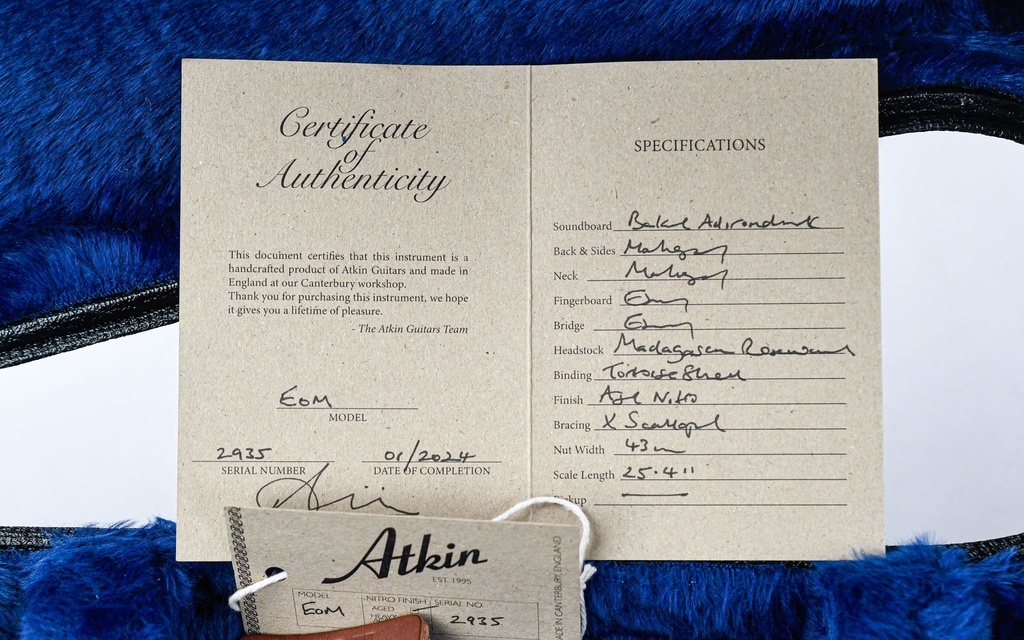 Certificate
of
Authenticity
This document certifies that this instrument is a
handcrafted product of Atkin Guitars and made in
England at our Canterbury workshop.
Thank you for purchasing this instrument, we hope
it gives you a lifetime of pleasure.
- The Atkin Guitars Team
EOM
MODEL
2935 01/2024
SERIAL NUMBER DATE OF COMPLETION
SPECIFICATIONS
Soundboard Baked Adirondack
Back & Sides Mahogany
Neck Mahogany
Fingerboard Ebony
Bridge Ebony
Headstock Madagascan Rosewood
Binding Tortoise Shell
Finish Nitro
Bracing X Scalloped
Nut Width 43
Scale Length 25.4"
Atkin
EST. 1995
MODEL NITRO FINISH SERIAL NO.
EOM AGED 2935
MADE IN CANTERBURY, ENGLAND